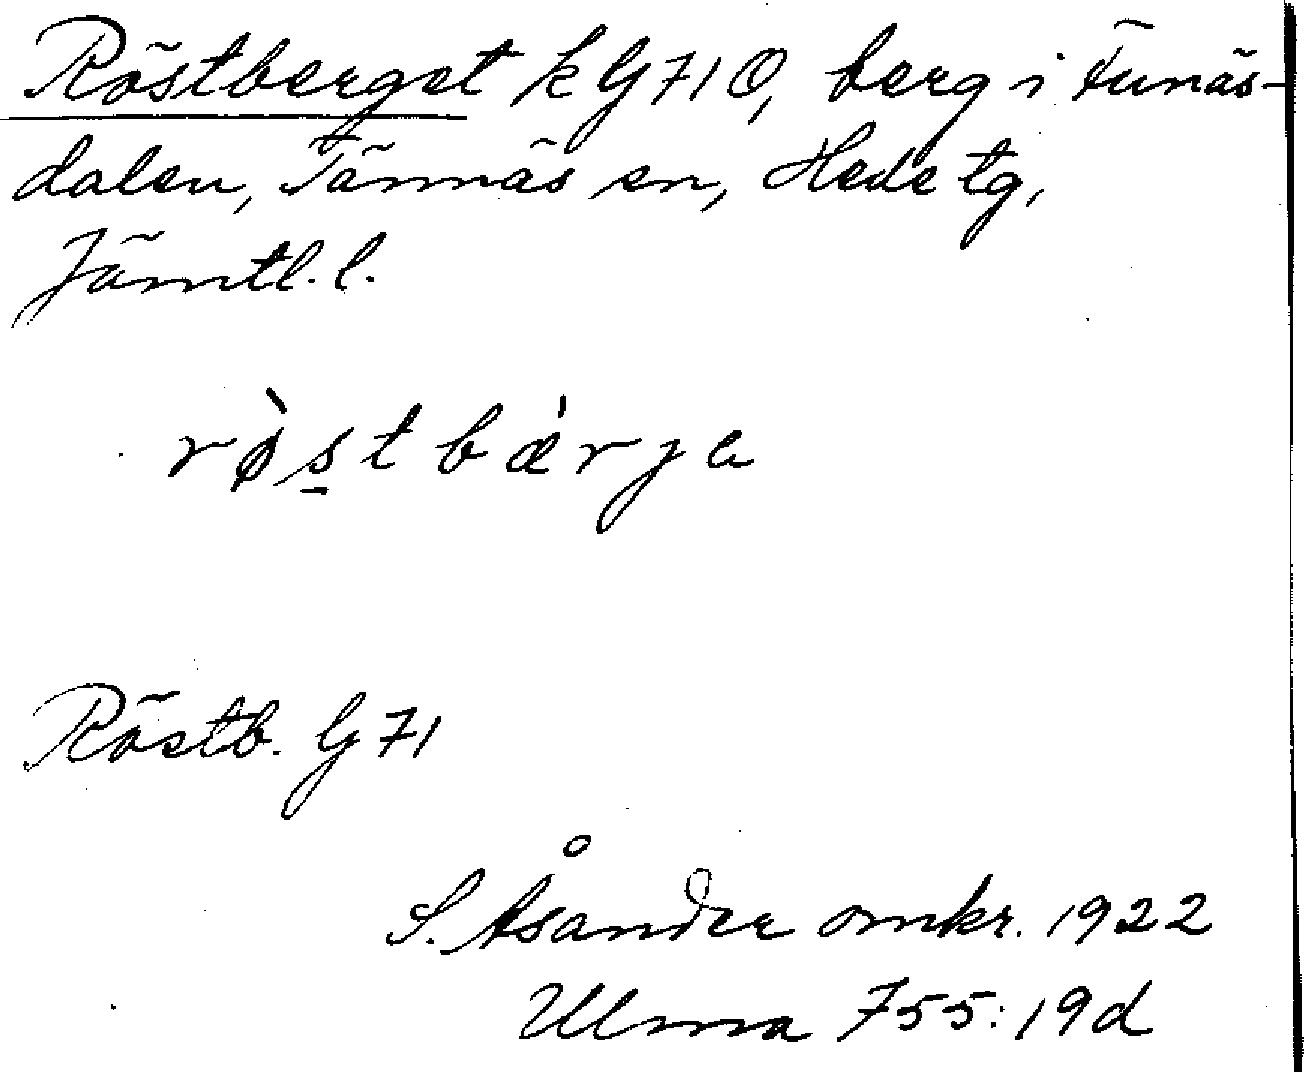 Röstberget k G 71 O, berg i Funäs-
dalen, Tännäs sn, Hede tg,
Jämtl. l.
rø̀stbǽrja
Röstb. G 71
S. Åsander omkr. 1922
Ulma 755:19d